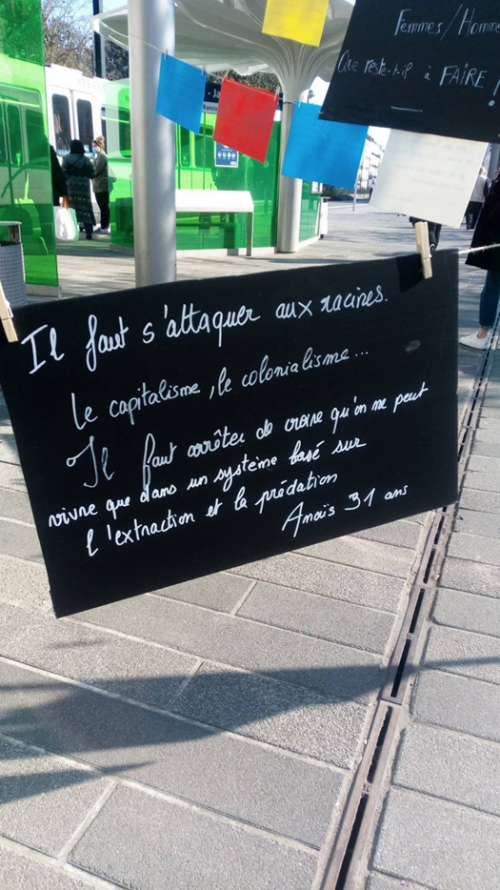 Femmes/Homme
Que reste-t-il à FAIRE!
Il faut s'attaquer aux racines.
Le capitalisme, le colonialisme...
Il faut arrêter de croire qu'on ne peut
vivre que dans un système basé sur
l'extraction et la prédation
Anaïs 31 ans